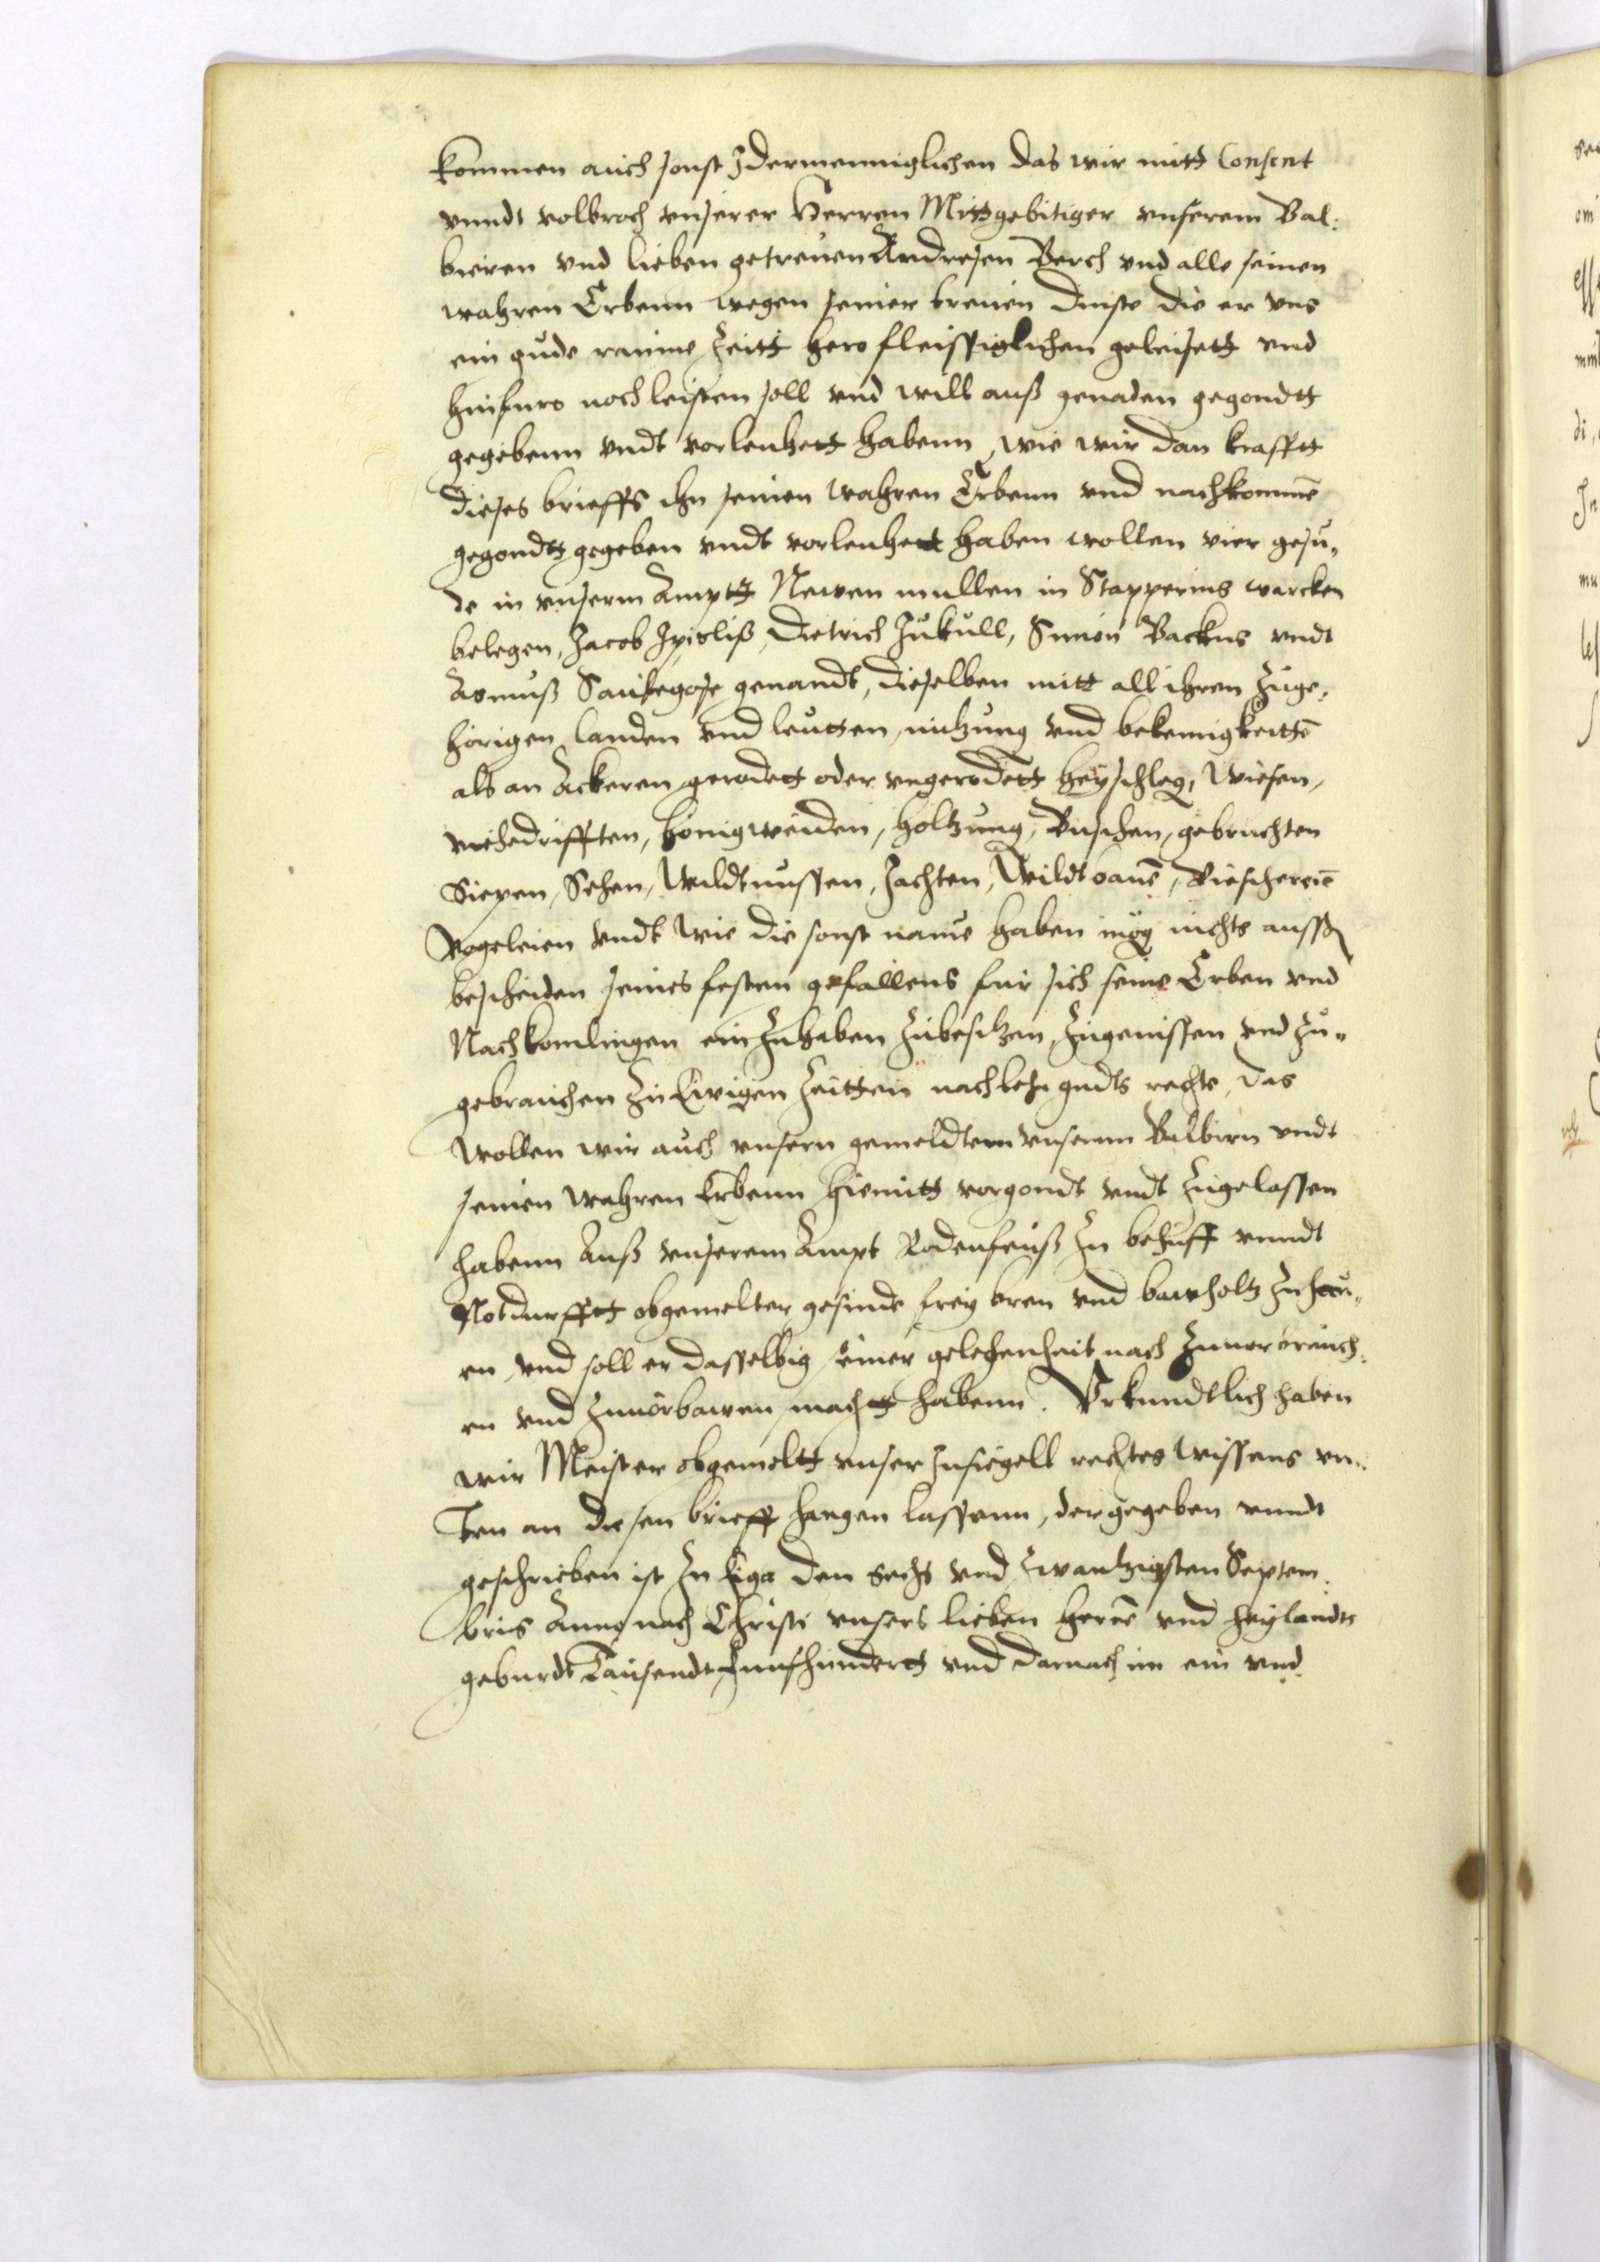 kommen auch sonst Jdermenniglichen das wir mitt Consent
vnndt volbroch vnserer Herren Mittgebitiger vnserem Bal-
bieren vnd lieben getreuen Andresen Berch vnd alle seinen
wahren Erbenn wegen seiner treuen dinste die er vns
ein gude raume Zeitt hero fleissiglichen geleisett vnd
hinfuro noch leisten soll vnd will auß genaden gegondtt
gegebenn vndt vorlenhett habenn, wie wir dan krafftt
dieses brieffs ihn seinen wahren Erbenn vnd nachkommē
gegondtt gegeben vndt vorlenhett haben wollen vier gesu-
de in vnserm Amptt Newen mullen in Stapperins warcken
belegen, Jacob Dietrich Jukull, Simon Backus vndt
Asmuß genandt, dieselben mitt all ihren Zuge-
hörigen landen vnd leutten, nutzung vnd bekemigkeittē
als an Ackeren gerodett oder vngerodett heyschleg, Wiesen,
viehedrifften, honigweiden, holtzung, Buschen, gebruchten
Siepen, Sehen, Wildtnussen, Jachten, Wildtbanē, Vieschereiē
Vogeleien vndt wie die sonst name haben mög nichts aussen
bescheiden seines festen gefallens fur sich seine Erben vnd
Nachkomlingen ein Zuhaben Zubesitzen, Zugenissen vnd Zu-
gebrauchen Zu Ewigen Zeitten nach lehn gudts rechte, das
wollen wir auch vnsern gemeldtem vnserem Balbirn vndt
seinen wahren Erbenn hiemitt vorgondt vndt Zugelassen
habenn Auß vnserem Ampt Rodenpeuß Zu behuff vnndt
Notdurfftt obgemelter gesinde frey bren vnd bawholtz Zu hau-
en, vnd soll er dasselbig seiner gelegenheit nach Zuuorbrauch-
en vnd Zuuorbawen machtt habenn. Vrkundtlich haben
wir Meister obgemeltt vnser Insiegell rechtes wissens vn-
ten an diesen brieff hangen lassenn, der gegeben vnndt
geschrieben ist Zu Riga den sechs vnd Zwantzigsten Septem-
bris Anno nach Christi vnsers lieben herrē vnd heylandts
geburdt Tausendt Funfhundertt vnd darnach im ein vnd